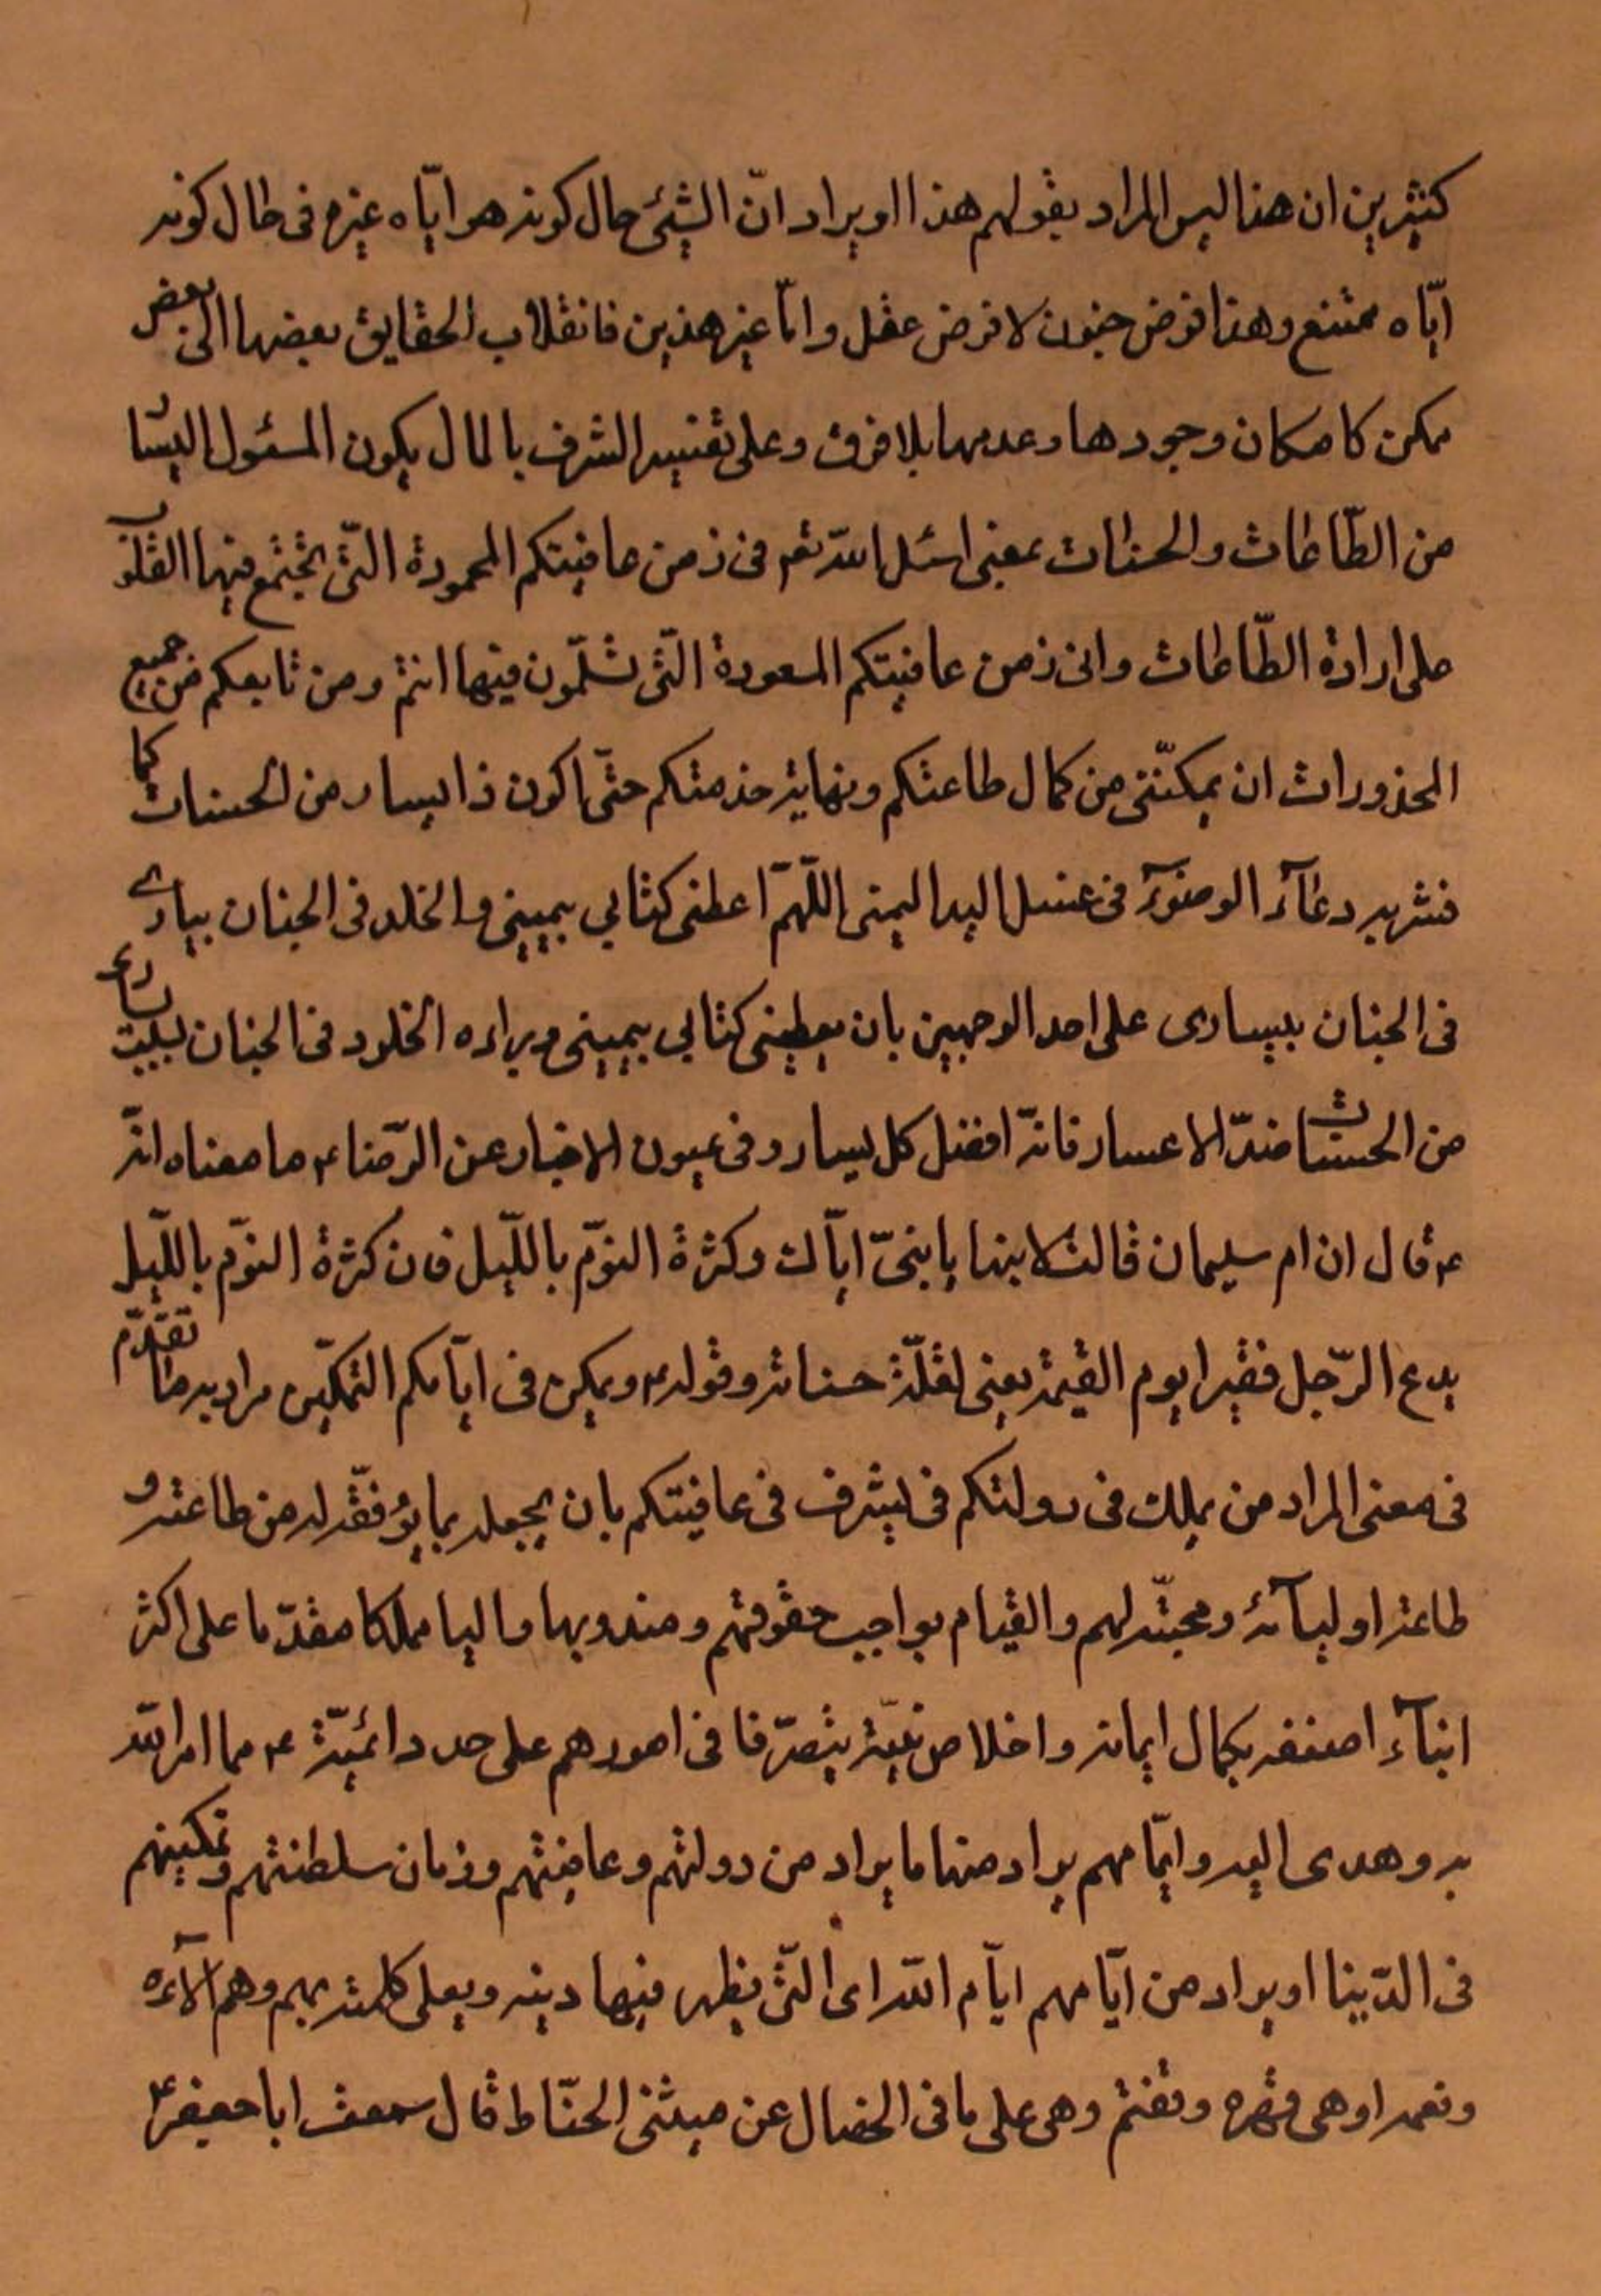 كثيرين ان هذا ليس المراد بقولهم هذا او يراد انّ الشيئ حال كونه هو ايّاه غيره فى حال كونه
ايّاه ممتنع وهذا فرض جنون لا فرض عقل وامّا غير هذين فانقلاب الحقايق بعضها الى بعض
ممكن كامكان وجودها وعدمها بلا فرق وعلى تفسير الشرف بالمال يكون المسئول اليسار
من الطّاعات والحسنات بمعنى اسئل اللّه تعه فى زمن عافيتكم المحمودة الّتى تجتمع فيها القلوب
على ارادة الطّاعات وفى زمن عافيتكم المسعودة الّتى تسلمون فيها انتم ومن تابعكم من جميع
المحذورات ان يمكنّنى من كمال طاعتكم ونهاية خدمتكم حتّى اكون ذا يسار من الحسنات كما
فسّر به دعآء الوضوء فى غسل اليد اليمنى اللّهمّ اعطنى كتابى بيمينى والخلد فى الجنان بيسارى
فى الجنان بيسارى على احد الوجهين بان يعطينى كتابى بيمينى ويراد الخلود فى الجنان بيسارى
من الحسنات ضدّ الاعسار فانّه افضل كل يسار وفى عيون الاخبار عن الرّضاء ع ما معناه انّه
ع قال ان ام سليمان قالت لابنها يا بنىّ ايّاك وكثرة النوم باللّيل فان كثرة النوم باللّيل
يدع الرّجل فقيرا يوم القيمة يعنى لقلّة حسناته وقوله ع ويمكن فى ايّامكم التمكين مراد به ما تقدّم
فى معنى المراد من يملك فى دولتكم فى يشرف فى عافيتكم بان يجعله بما يؤفّقه له من طاعته و
طاعة اوليآئه ومحبّته لهم والقيام بواجب حقوقهم ومندوبها واليا مملكا مقدّما على اكثر
ابنآء اصنفه بكمال ايمانه واخلاص نيّته يتصرّفا فى امورهم على حدد دائميّة ع مما امر اللّه
به وهدى اليه وايّامهم يراد منها ما يراد من دولتهم وعافيتهم وزمان سلطنتهم وتمكينهم
فى الدّنيا او يراد من ايّامهم ايّام اللّه اى الّتى يظهر فيها دينه ويعلى كلمته بهم وهم آلاءه
ونعمه او هى قهره ونقمته وهى على ما فى الخصال عن مثنى الحنّاط قال سمعت ابا جعفر ع